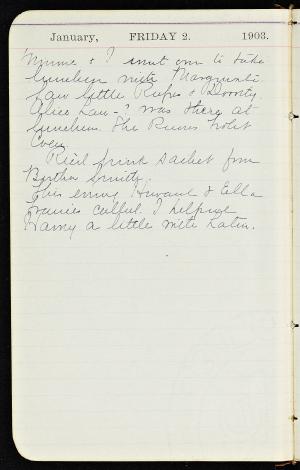 January, FRIDAY 2. 1903.
Minnie & I went over to take
luncheon with Marguerite
Saw little Rufus & Dorothy.
Alice Law-? was there at
luncheon. The
Over.
Rec'd from
Bertha Smith.
This evening Howard & Ella
called. I helped
Harry a little with Latin.